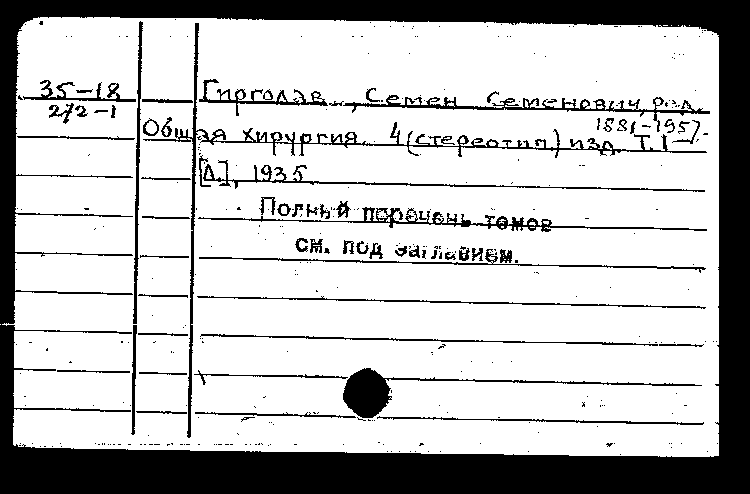 35-18
272-1
Гирголав, Семен Семенович, ред.
1881-1957.
Общая хирургия. 4 (стереотип) изд. Т. I-
[Л.], 1935.
Полный перечень томов
см. под заглавием.